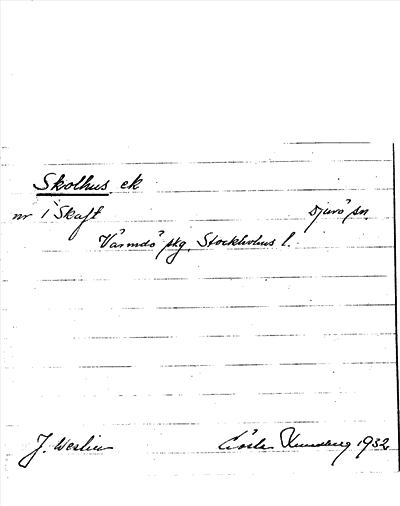 Skolhus ek
nr 1 Skaft Djurö sn.
Värmdö skg, Stockholms l.
J. Weslien Gösta 1932